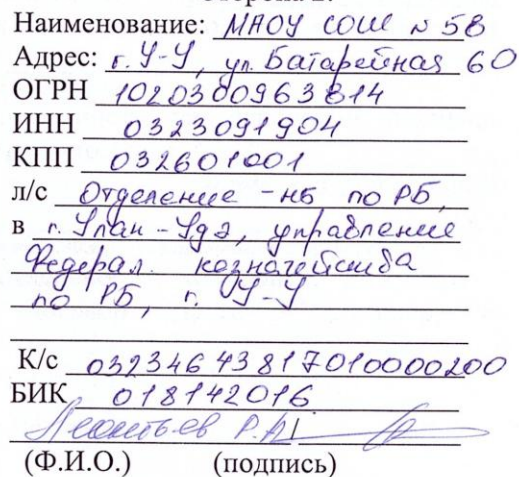 Наименование: МАОУ СОШ N 58
Адрес: г. У-У, ул. Батарейная 60
ОГРН 1020300963814
ИНН 0323091904
КПП 032601001
л/с Отделение - НБ по РБ,
в г. Улан-Удэ, управление
Федерал. казначейства
по РБ, г. У-У
К/с 03234643817010000200
БИК 018142016
Леонтьев Р.А
(Ф.И.О.) (подпись)